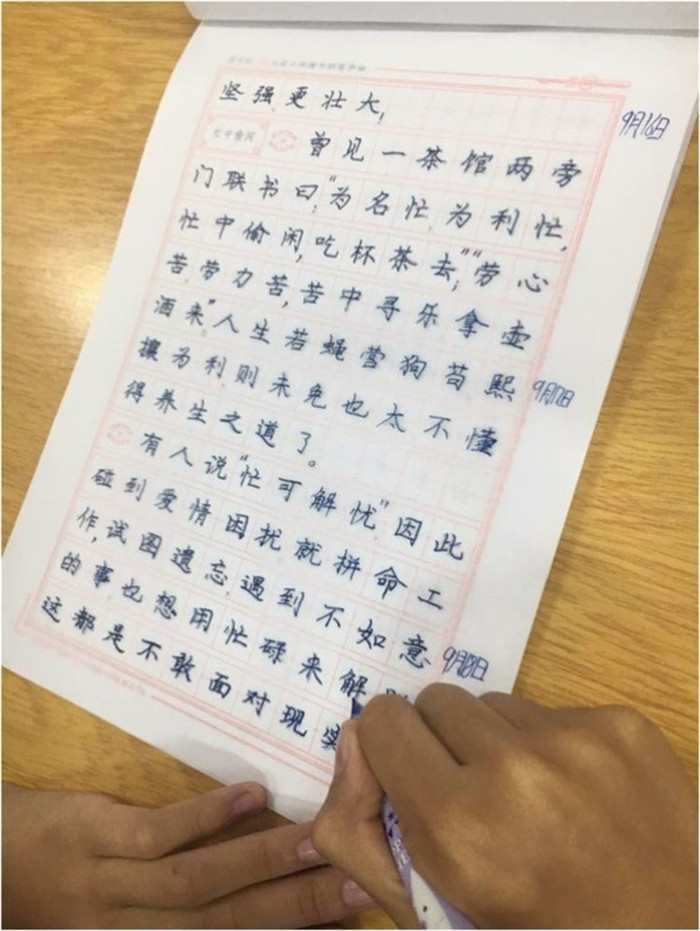 坚强更壮大,
9月16日
忙中偷闲
曾见一茶馆两旁
门联书曰:“为名忙,为利忙,
忙中偷闲,吃杯茶去;”“劳心
苦,劳力苦,苦中寻乐拿壶
酒来”人生若蝇营狗苟熙
9月17日
攘为利则未免也太不懂
得养生之道了。
有人说“忙可解忧”因此
碰到爱情困扰就拼命工
作,试图遗忘,遇到不如意
的事,也想用忙碌来解
9月18日
这都是不敢面对现实